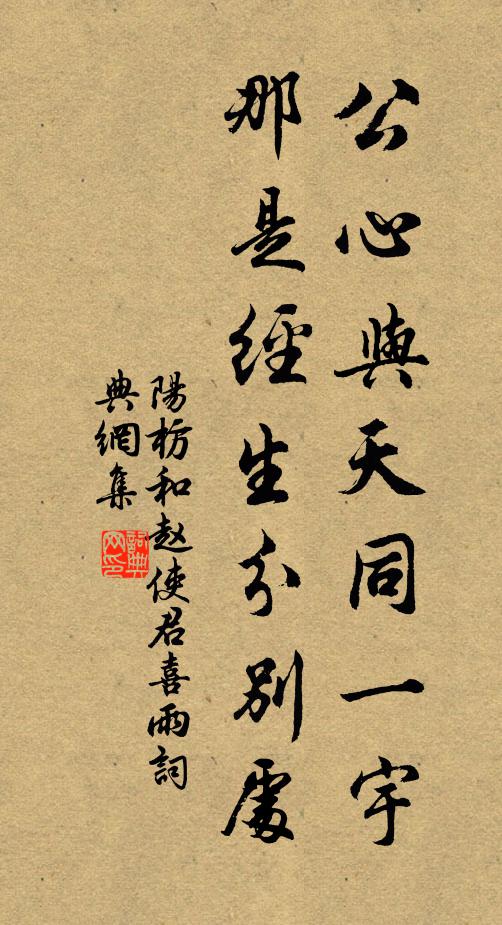 公心與天同一宇
那是經生分別處
陽枋和赵使君喜雨詞
典網集
詞典网印